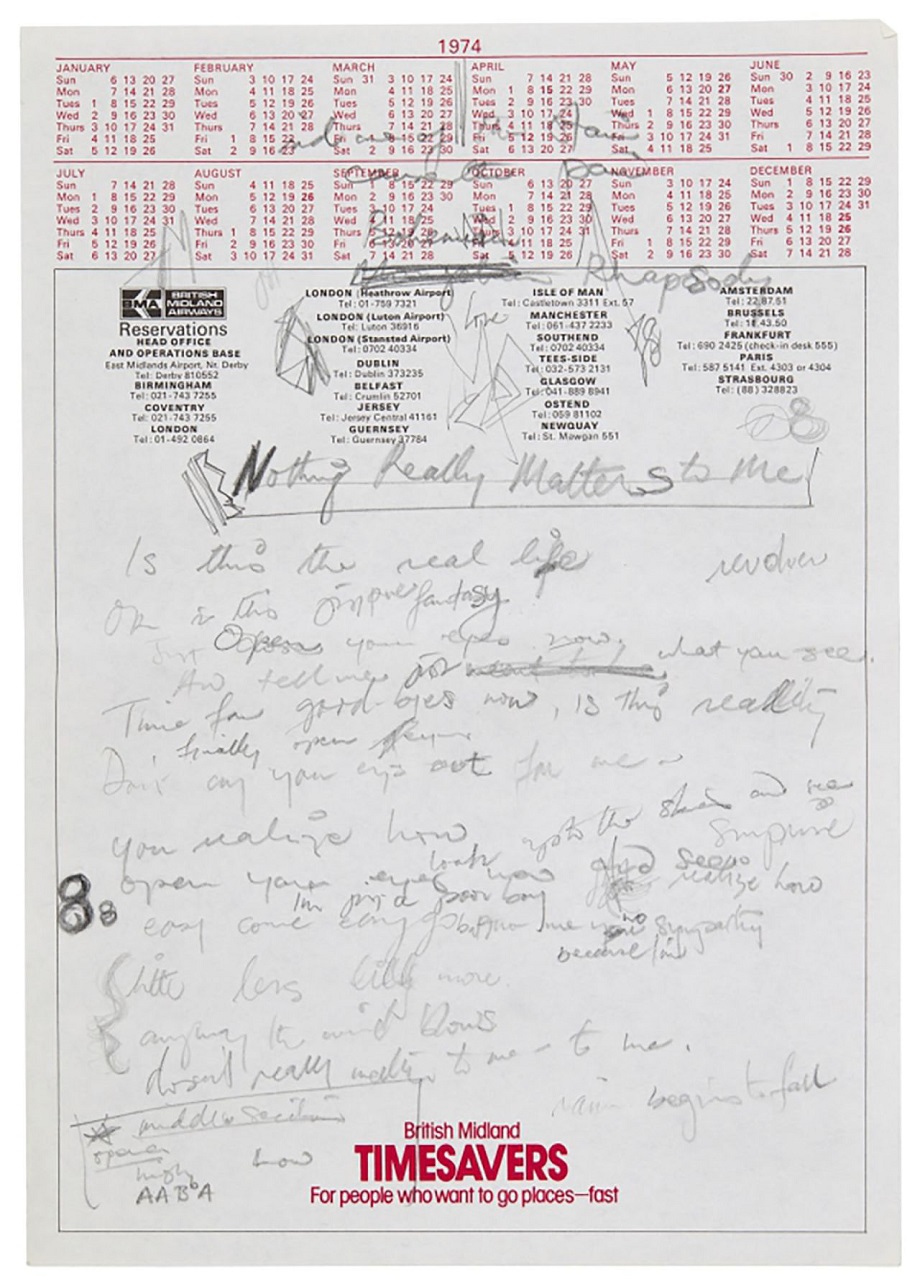 1974
JANUARY FEBRUARY MARCH APRIL MAY JUNE
Sun 6 13 20 27 Sun 3 10 17 24 Sun 31 3 10 17 24 Sun 7 14 21 28 Sun 5 12 19 26 Sun 30 2 9 16 23
Mon 7 14 21 28 Mon 4 11 18 25 Mon 4 11 18 25 Mon 1 8 15 22 29 Mon 6 13 20 27 Mon 3 10 17 24
Tues 1 8 15 22 29 Tues 5 12 19 26 Tues 5 12 19 26 Tues 2 9 16 23 30 Tues 7 14 21 28 Tues 4 11 18 25
Wed 2 9 16 23 30 Wed 6 13 20 27 Wed 6 13 20 27 Wed 3 10 17 24 Wed 1 8 15 22 29 Wed 5 12 19 26
Thurs 3 10 17 24 31 Thurs 7 14 21 28 Thurs 7 14 21 28 Thurs 4 11 18 25 Thurs 2 9 16 23 30 Thurs 6 13 20 27
Fri 4 11 18 25 Fri 1 8 15 22 Fri 1 8 15 22 29 Fri 5 12 19 26 Fri 3 10 17 24 31 Fri 7 14 21 28
Sat 5 12 19 26 Sat 2 9 16 23 Sat 2 9 16 23 30 Sat 6 13 20 27 Sat 4 11 18 25 Sat 1 8 15 22 29
JULY AUGUST SEPTEMBER OCTOBER NOVEMBER DECEMBER
Sun 7 14 21 28 Sun 4 11 18 25 Sun 1 8 15 22 29 Sun 6 13 20 27 Sun 3 10 17 24 Sun 1 8 15 22 29
Mon 1 8 15 22 29 Mon 5 12 19 26 Mon 2 9 16 23 30 Mon 7 14 21 28 Mon 4 11 18 25 Mon 2 9 16 23 30
Tues 2 9 16 23 30 Tues 6 13 20 27 Tues 3 10 17 24 Tues 1 8 15 22 29 Tues 5 12 19 26 Tues 3 10 17 24 31
Wed 3 10 17 24 31 Wed 7 14 21 28 Wed 4 11 18 25 Wed 2 9 16 23 30 Wed 6 13 20 27 Wed 4 11 18 25
Thurs 4 11 18 25 Thurs 1 8 15 22 29 Thurs 5 12 19 26 Thurs 3 10 17 24 31 Thurs 7 14 21 28 Thurs 5 12 19 26
Fri 5 12 19 26 Fri 2 9 16 23 30 Fri 6 13 20 27 Fri 4 11 18 25 Fri 1 8 15 22 29 Fri 6 13 20 27
Sat 6 13 20 27 Sat 3 10 17 24 31 Sat 7 14 21 28 Sat 5 12 19 26 Sat 2 9 16 23 30 Sat 7 14 21 28
Bohemian
Rhapsody
BMA BRITISH MIDLAND AIRWAYS
Reservations
HEAD OFFICE
AND OPERATIONS BASE
East Midlands Airport, Nr. Derby
Tel: Derby 810552
BIRMINGHAM
Tel: 021-743 7255
COVENTRY
Tel: 021-743 7255
LONDON
Tel: 01-492 0864
LONDON (Heathrow Airport)
Tel: 01-759 7321
LONDON (Luton Airport)
Tel: Luton 36916
LONDON (Stansted Airport)
Tel: 0702 40334
DUBLIN
Tel: Dublin 373235
BELFAST
Tel: Crumlin 52701
JERSEY
Tel: Jersey Central 41161
GUERNSEY
Tel: Guernsey 37784
Love
ISLE OF MAN
Tel: Castletown 3311 Ext. 57
MANCHESTER
Tel: 061-437 2233
SOUTHEND
Tel: 0702 40334
TEES-SIDE
Tel: 032-573 2131
GLASGOW
Tel: 041-889 8941
OSTEND
Tel: 059 81102
NEWQUAY
Tel: St. Mawgan 551
AMSTERDAM
Tel: 22.87.51
BRUSSELS
Tel: 18.43.50
FRANKFURT
Tel: 690 2425 (check-in desk 555)
PARIS
Tel: 587 5141 Ext. 4303 or 4304
STRASBOURG
Tel: (88) 328823
Nothing Really Matters to Me
Is this the real life
is this fantasy
Just Open your eyes now. what you see.
And tell me
Time for good-byes now, is this reality
finally open
Don't cry your eyes out for me
you realize how up to the skies and see
surprise
open your eyes look now and see realize how
I'm just a poor boy
easy come easy go no sympathy
because I'm
little less little more
anyway the wind blows
doesn't really matter to me - to me.
rain begins to fall
middle section
opera
high low
A A B A
British Midland
TIMESAVERS
For people who want to go places—fast